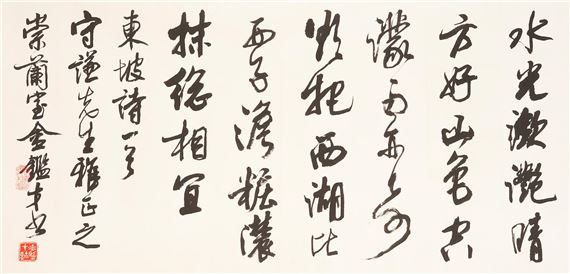 水光瀲灧晴
方好山色空
濛雨亦奇
欲把西湖比
西子澹粧濃
抹總相宜
東坡詩一首
守謙先生雅正之
崇蘭室金鑑才書